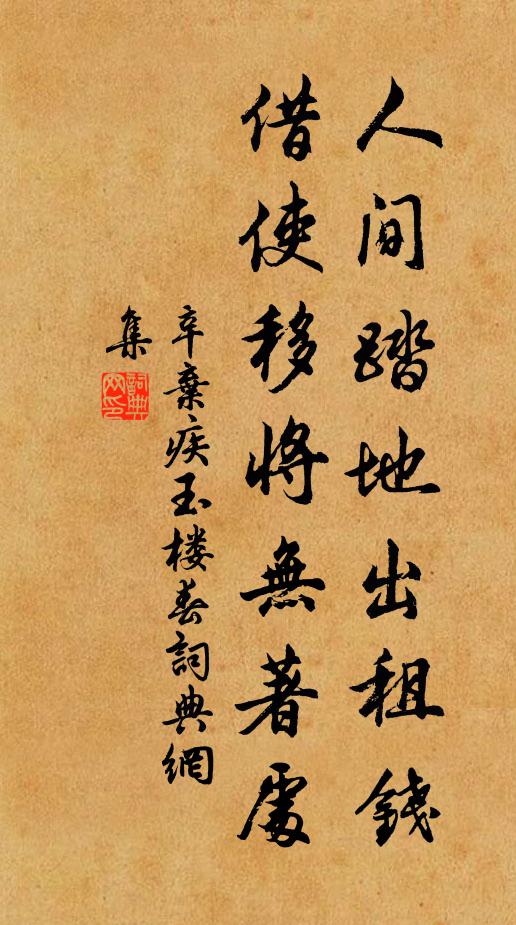 人間踏地出租錢
借使移將無著處
辛棄疾玉楼春詞典網
集
詞典網印